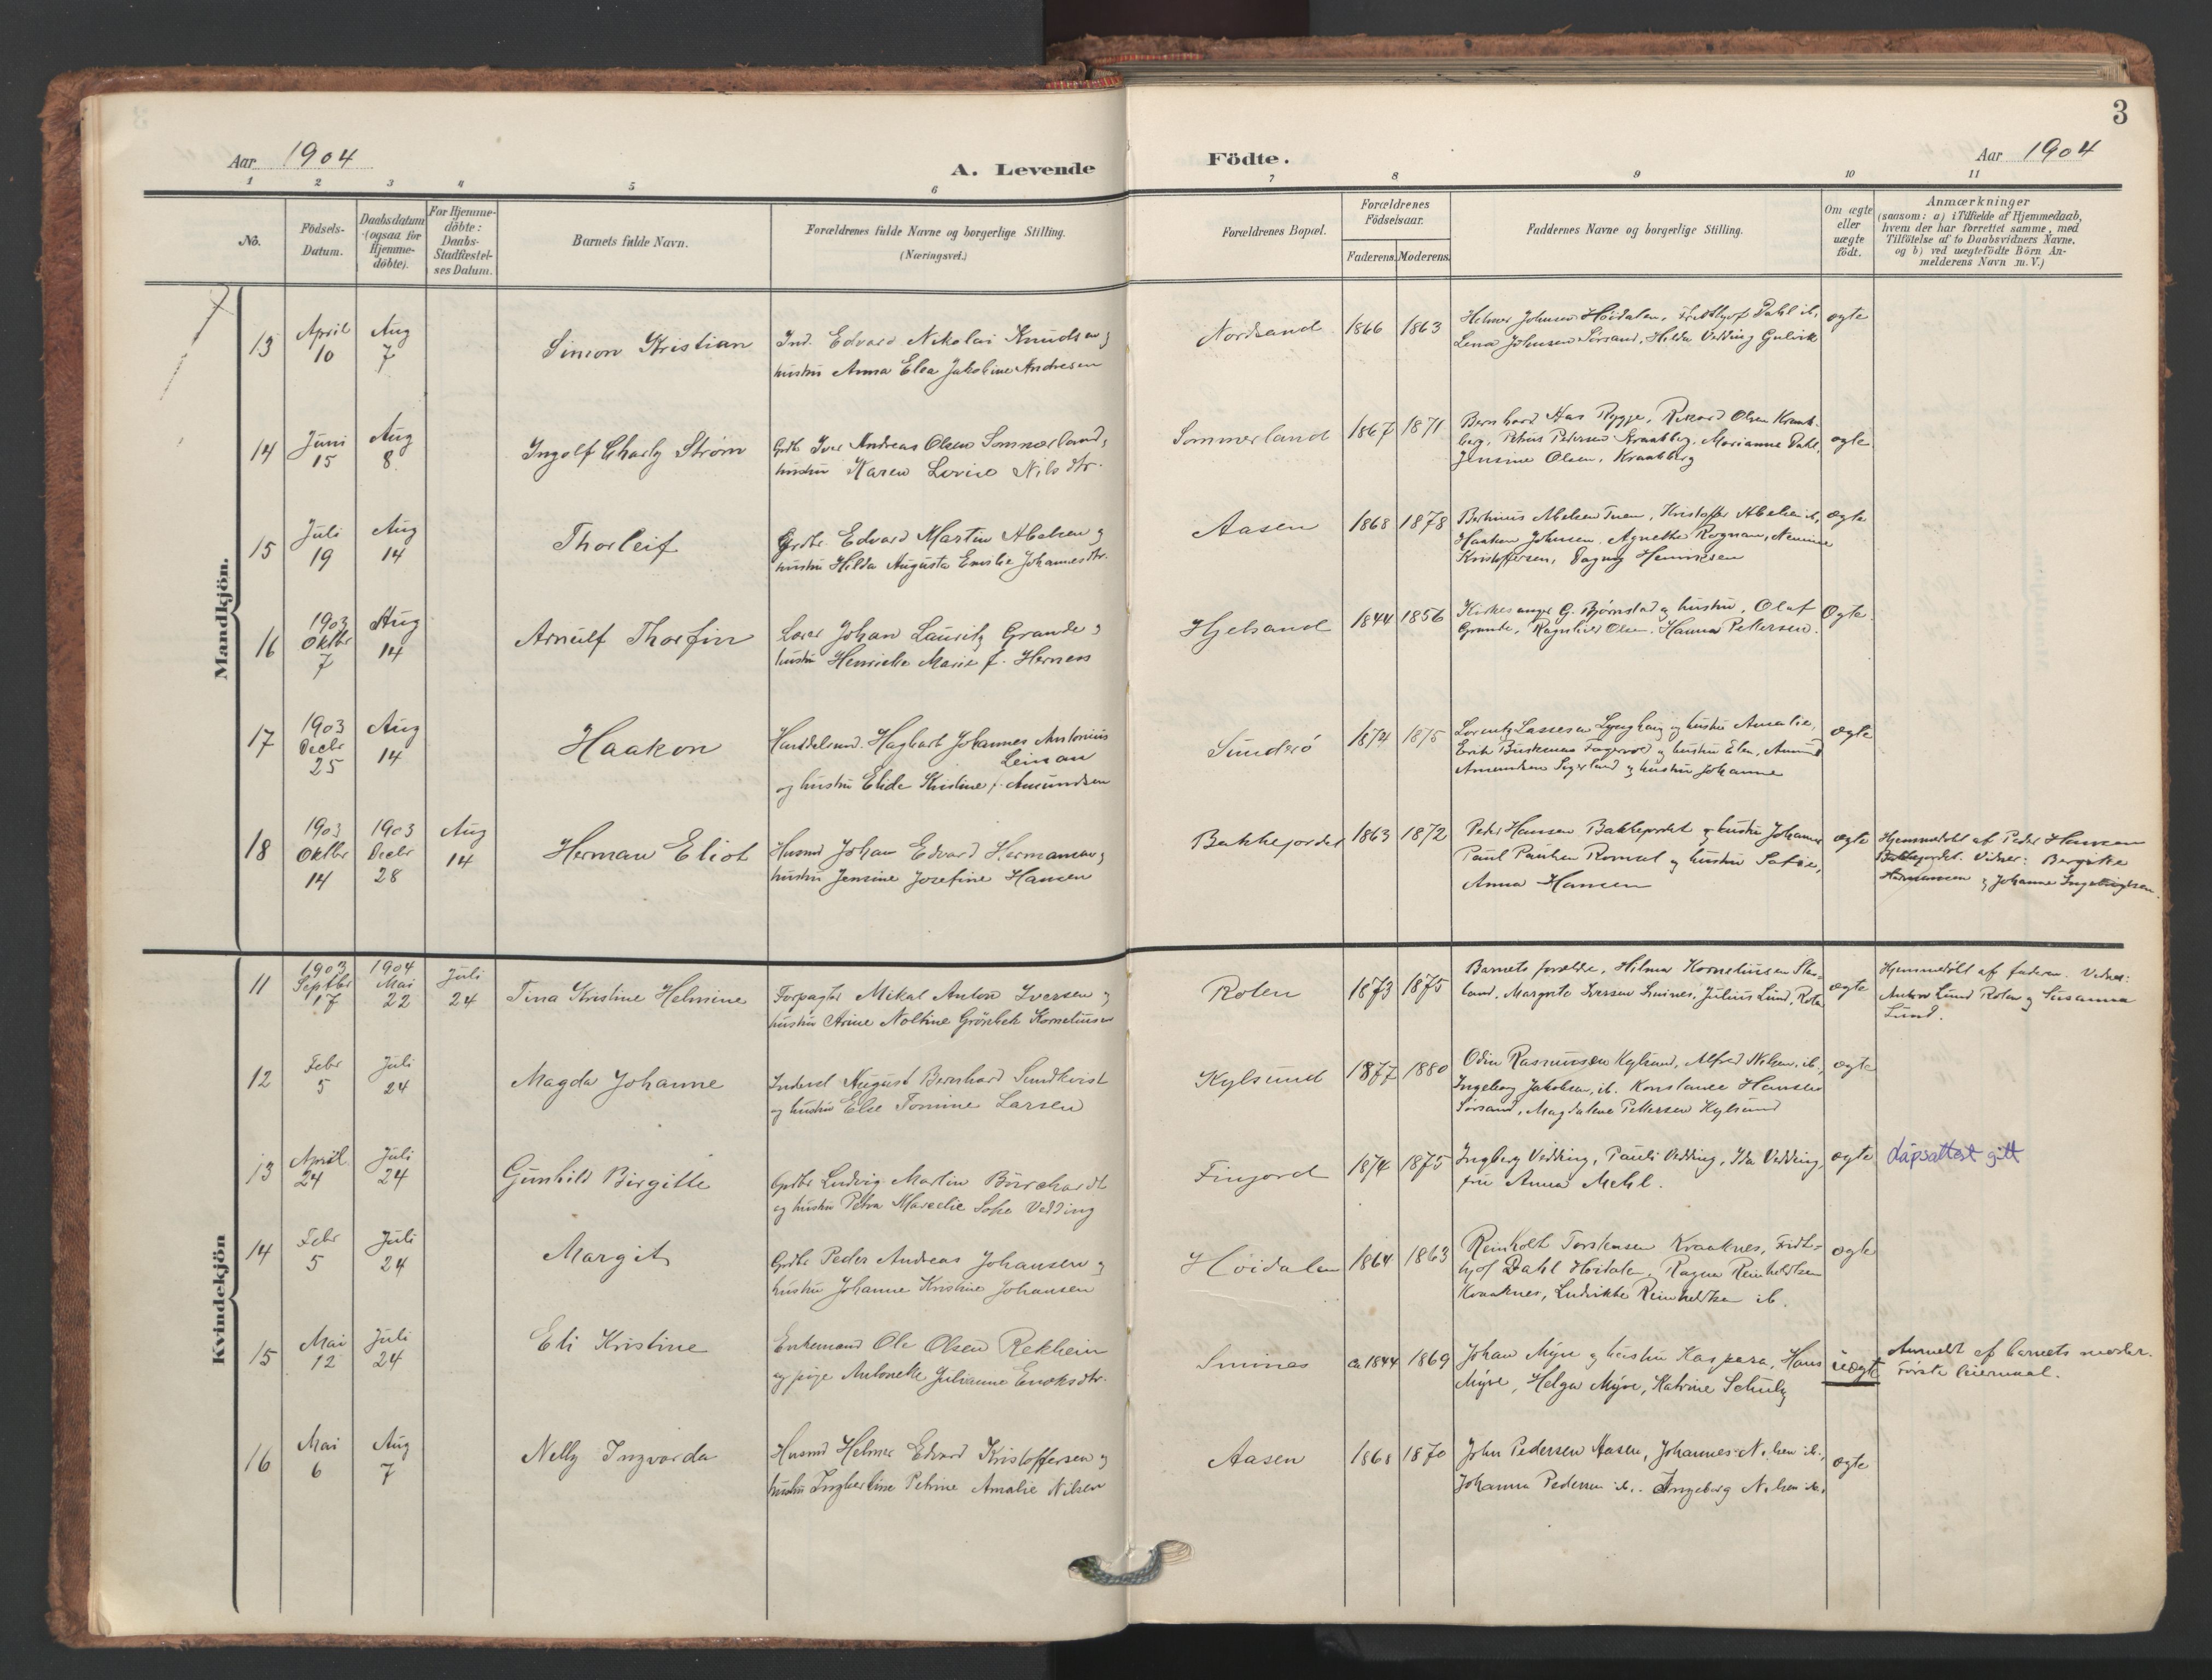 3
Aar 1904
A. Levende
Födte.
Aar 1904
1 2 3 4 5 6 7 8 9 10 11
No.
Födsels-
Datum.
Daabsdatum
(ogsaa for
Hjemme-
döbte).
For Hjemme-
döbte:
Daabs-
Stadfæstel-
ses Datum.
Barnets fulde Navn.
Forældrenes fulde Navne og borgerlige Stilling.
(Næringsvei.)
Forældrenes Bopæl.
Forældrenes
Födselsaar.
Faderens. Moderens.
Faddernes Navne og borgerlige Stilling.
Om ægte
eller
uægte
födt.
Anmærkninger
(saasom: a) i Tilfælde af Hjemmedaab,
hvem der har forrettet samme, med
Tilföielse af to Daabsvidners Navne,
og b) ved uægtefödte Börn An-
melderens Navn m. V.)
Mandkjön.
13
April
10
Aug
7
Simon Kristian
Ind. Edvard Nikolai Knudsen og
hustru Anna Elea Jakobine Andresen
Nordsand
1866 1863
Helmer Johnsen Höidalen, Fridthjof Dahl ib,
Lena Johnsen Sörsand, Hilda Vedding Gulvik
ægte
14
Juni
15
Aug
8
Ingolf Charly Strøm
Grdbr Iver Andreas Olsen Sommerland,
hustru Karen Lovise Nilsdtr.
Sommerland
1867 1871
Bernhard Aas Rygge, Rikard Olsen Kraak-
berg, Petrus Pedersen Kraakberg, Marianne Dahl,
Jensine Olsen, Kraakberg
ægte
15
Juli
19
Aug
14
Thorleif
Grdbr. Edvard Martin Abelsen og
hustru Hilda Augusta Emilie Johannesdtr.
Aasen
1868 1878
Bertinius Abelsen Tuen, Kristoffer Abelsen ib,
Haakon Johnsen, Agnethe Rognan, Nennine
Kristoffersen, Dagny Henriksen
ægte
16
1903
Oktbr
7
Aug
14
Arnulf Thorfin
Lærer Johan Lauritz Grande og
hustru Henrikke Marie f. Hernes
Hjelsand
1844 1856
Kirkesanger G. Bjørnstad og hustru, Olaf
Grande, Ragnhild Olsen, Hanna Pettersen.
Ægte
17
1903
Decbr
25
Aug
14
Haakon
Handelsmd. Hagbart Johannes Antonius
Leinan
og hustru Elide Kristine f. Amundsen
Sunderö
1874 1875
Lorentz Lassesen Lynghaug og hustru Amalie,
Erik Buskenas Fagervold og hustru Elen, Amund
Amundsen Segerland og hustru Johanne
ægte
18
1903
Oktbr
14
1903
Decbr
28
Aug
14
Herman Eliot
Husmd Johan Edvard Hermansen og
hustru Jensine Josefine Hansen
Bakkejordet
1863 1872
Peder Hansen Bakkejordet og hustru Johanne
Paul Paulsen Romset og hustru Sofie,
Anna Hansen
ægte
Hjemmedöbt af Peder Hansen
Bakkejordet. Vidner: Bergitte
Hermansen og Johanne Ingebrigtsen.
Kvindekjön
11
1903
Septbr
17
1904
Mai
22
Juli
24
Tina Kristine Helmine
Forpagter Mikal Anton Iversen og
hustru Arine Noltine Grönbek Korneliussen
Roten
1873 1875
Barnets forældre, Hilmar Korneliussen Ska-
land, Margrete Iversen Smines, Julius Lund, Roten
ægte
Hjemmedöbt af faderen. Vidner:
Anton Lund Roten og Susanna
Lund.
12
Febr
5
Juli
24
Magda Johanne
Inderst August Bernhard Sundkvist
og hustru Else Tomine Larsen
Kylsund
1877 1880
Odin Rasmussen Kylsund, Alfred Nilsen, ib,
Ingeborg Jakobsen, ib. Konstance Hansen
Sörsand, Magdalene Pettersen Kylsund
ægte
13
April
24
Juli
24
Gunhild Birgitte
Grdbr Ludvig Martin Börchardt
og hustru Petra Marcelie Sofie Vedding
Finjord
1874 1875
Ingberg Vedding, Pauli Vedding, Ida Vedding,
fru Anna Mehl.
ægte
dåpsattest gitt
14
Febr
5
Juli
24
Margit
Grdbr Peder Andreas Johansen og
hustru Johanne Kristine Johansen
Höidalen
1864 1863
Reinholt Torstensen Kraaknes, Fridt-
hjof Dahl Höidalen, Ragna Reinholdtsen
Kraaknes, Ludvikke Reinholdtsen ib.
ægte
15
Mai
12
Juli
24
Eli Kristine
Enkemand Ole Olsen Rekhein
og pige Antonette Julianne Enoksdtr.
Smines
Ca 1844 1869
Johan Myre og hustru Kaspara, Hans
Myre, Helga Myre, Katrine Schultz
uægte
Anmeldt af barnets moder.
Förste leiermaal.
16
Mai
6
Aug
7
Nelly Ingvarda
Husmd Helmer Edvard Kristoffersen og
hustru Ingberline Petrine Amalie Nilsen
Aasen
1868 1870
John Pedersen Aasen, Johannes Nilsen ib.,
Johanna Pedersen ib. Ingeborg Nilsen ib.
ægte